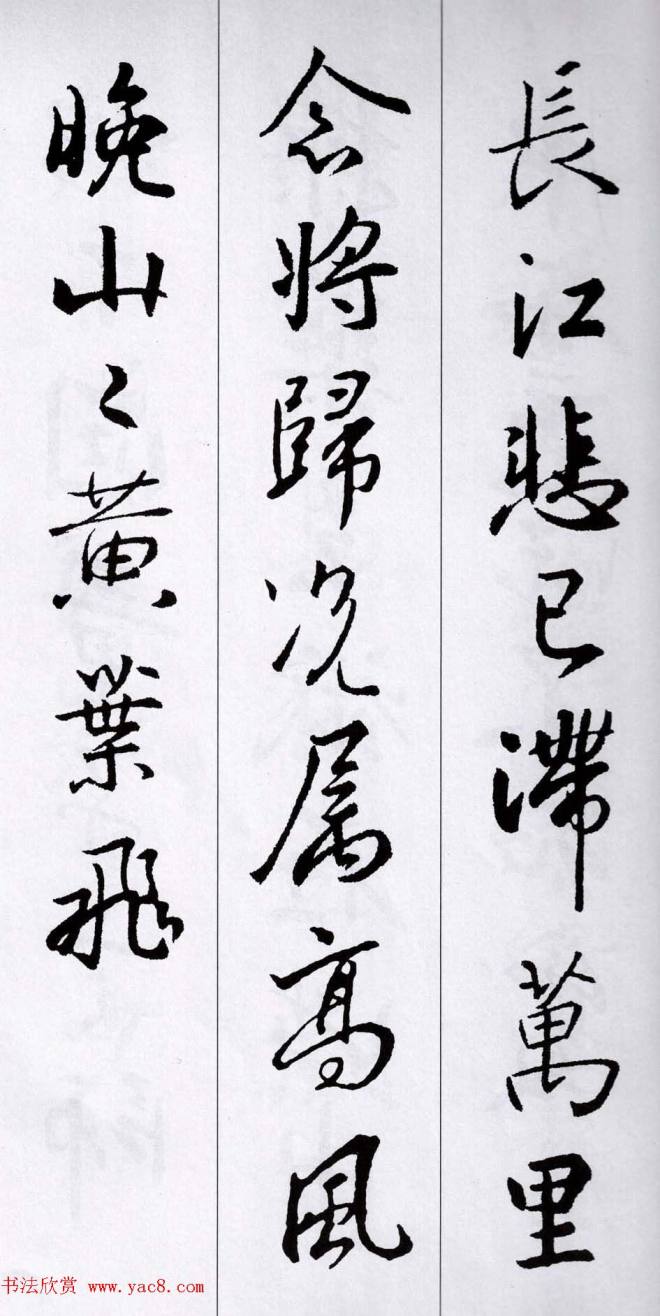 長江悲已滯萬里
念將歸况属高風
晚山〻黄葉飛
书法欣赏 www.yac8.com